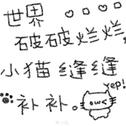 世界
破破烂烂
小猫缝缝
补补。
yep!